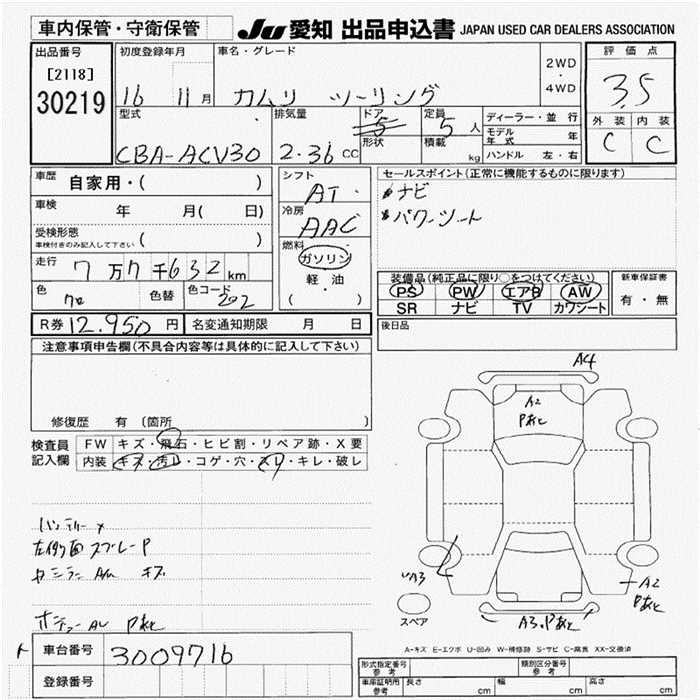 車内保管・守衛保管
JU 愛知 出品申込書 JAPAN USED CAR DEALERS ASSOCIATION
出品番号
[2118]
30219
初度登録年月
16 11月
車名・グレード
カムリ ツーリング
2WD
・
4WD
評価点
3.5
外装 内装
C C
型式
CBA-ACV30
排気量
2.36 CC
ドア
5
形状
定員
5人
積載
kg
ディーラー・並行
モデル年式 年
ハンドル 左・右
車歴
自家用・( )
車検
年 月( 日)
受検形態
車検付きのみ記入して下さい ( )
走行
7万7千632km
色
クロ
色替
色コード
202
シフト
AT
冷房
AAC
燃料
ガソリン
・
軽・油
( )
セールスポイント(正常に機能するものに限ります)
ナビ
パワーシート
装備品(純正品に限り○をつけてください)
PS PW エアB AW
SR ナビ TV カワシート
新車保証書
有・無
R券 12.950 円
名変通知期限 月 日
後日品
注意事項申告欄(不具合内容等は具体的に記入して下さい)
修復歴 有 〔箇所 〕
検査員記入欄
FW キズ・飛石・ヒビ割・リペア跡・X要
内装 キズ・汚レ・コゲ・穴・スレ・キレ・破レ
バッテリー×
左側面 スプレーP
キズ
Pあと
A4
A2
Pあと
A3
A2
Pあと
A3.Pあと
スペア
A-キズ E-エクボ U-凹み W-補修跡 S-サビ C-腐食 XX-交換済
車台番号
3009716
登録番号
形式指定番号
参考
類別区分番号
参考
車庫証明用
参考
長さ cm
幅 cm
高さ cm